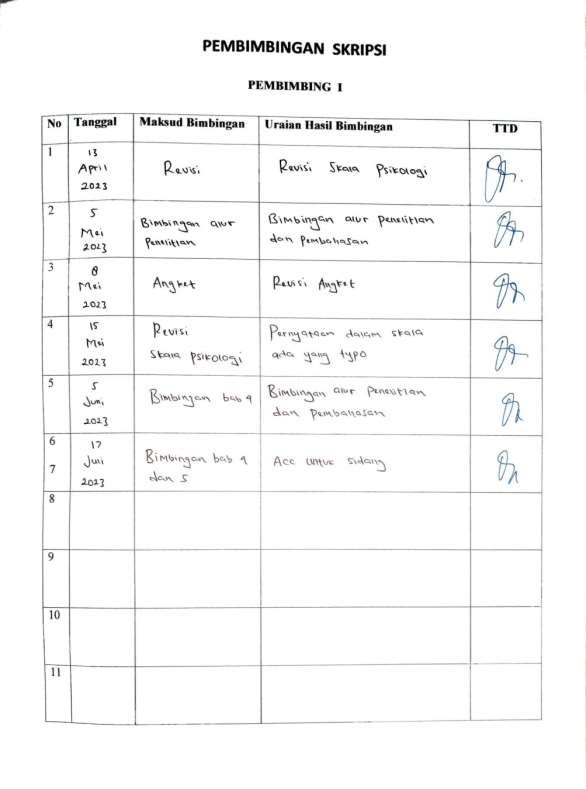 PEMBIMBINGAN SKRIPSI
PEMBIMBING I
No Tanggal Maksud Bimbingan Uraian Hasil Bimbingan TTD
1 13 April 2023 Revisi Revisi Skala Psikologi
2 5 Mei 2023 Bimbingan alur Penelitian Bimbingan alur penelitian dan Pembahasan
3 8 Mei 2023 Angket Revisi Angket
4 15 Mei 2023 Revisi Skala psikologi Pernyataan dalam skala ada yang typo
5 5 Juni 2023 Bimbingan bab 4 Bimbingan alur Penelitian dan Pembahasan
6 17 Juli 2023 Bimbingan bab 4 dan 5 Acc untuk sidang
7
8
9
10
11